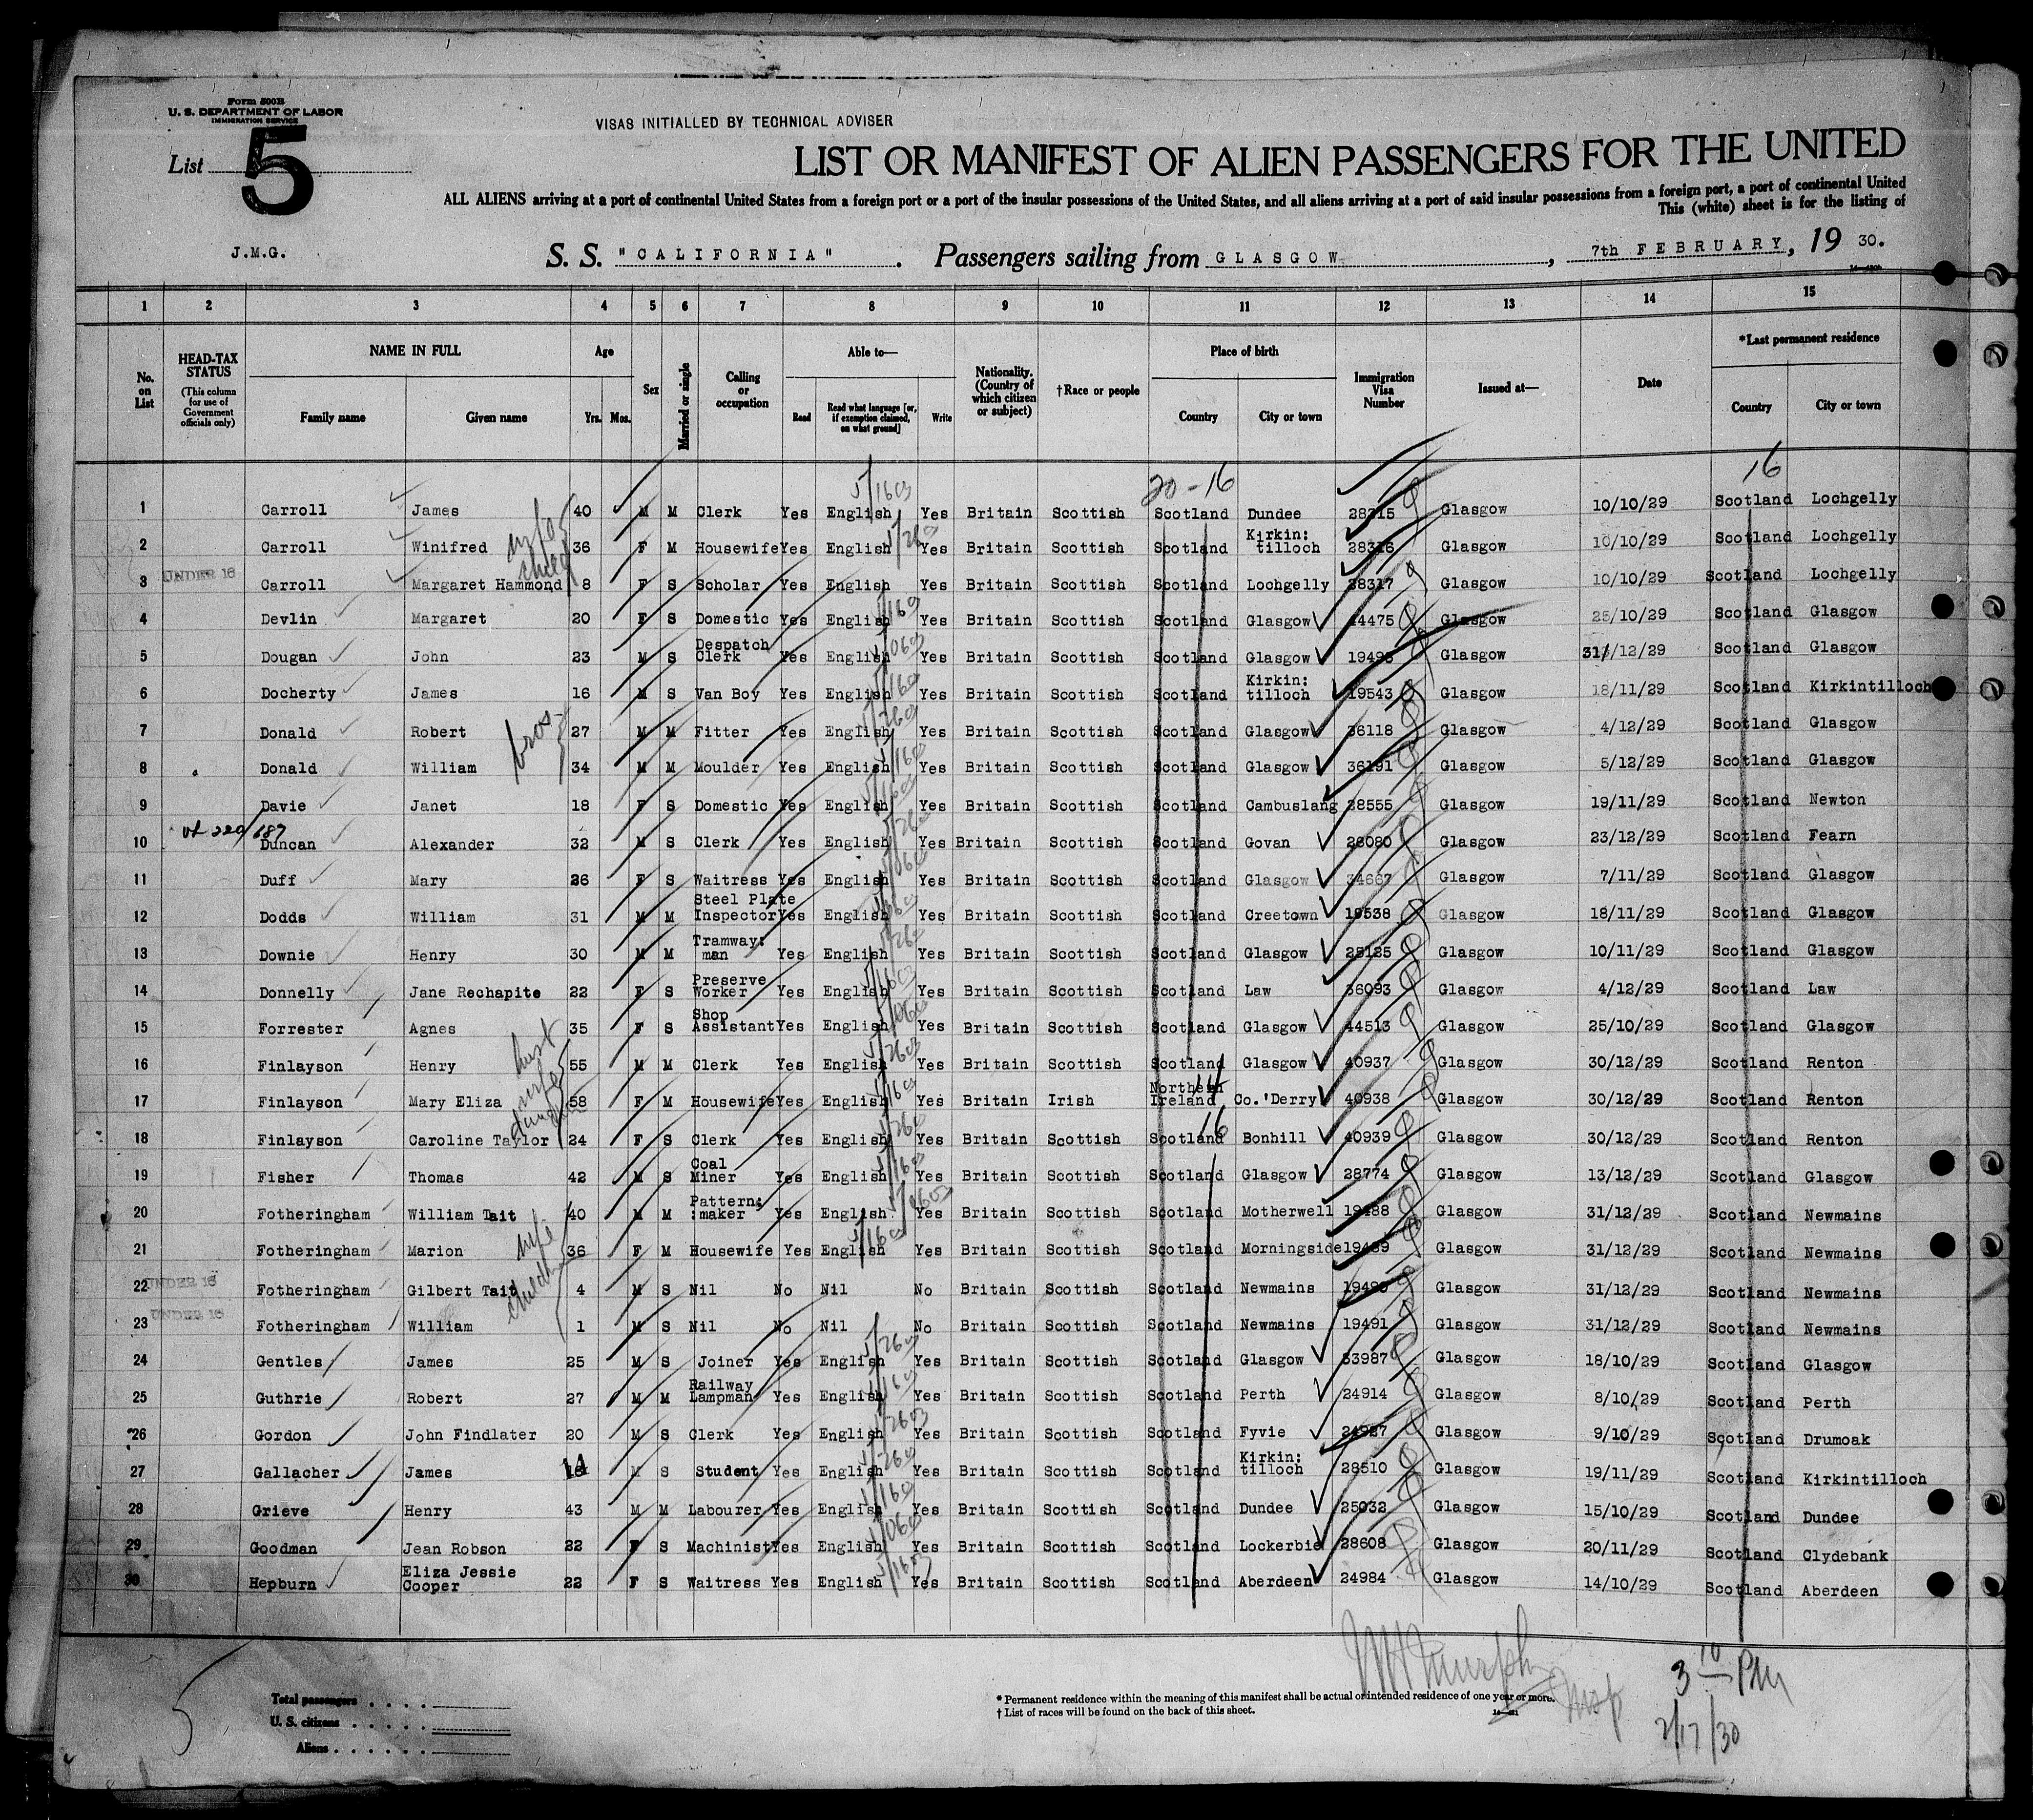 Form 500B
U. S. DEPARTMENT OF LABOR
IMMIGRATION SERVICE
VISAS INITIALLED BY TECHNICAL ADVISER
List 5
LIST OR MANIFEST OF ALIEN PASSENGERS FOR THE UNITED
ALL ALIENS arriving at a port of continental United States from a foreign port or a port of the insular possessions of the United States, and all aliens arriving at a port of said insular possessions from a foreign port, a port of continental United
This (white) sheet is for the listing of
J.M.G.
S. S. "CALIFORNIA". Passengers sailing from GLASGOW, 7th FEBRUARY, 19 30.
1 2 3 4 5 6 7 8 9 10 11 12 13 14 15
No. on List
HEAD-TAX STATUS (This column for use of Government officials only)
NAME IN FULL
Family name Given name
Age
Yrs. Mos.
Sex
Married or single
Calling or occupation
Able to—
Read Read what language [or, if exemption claimed, on what ground] Write
Nationality. (Country of which citizen or subject)
†Race or people
Place of birth
Country City or town
Immigration Visa Number
Issued at—
Date
*Last permanent residence
Country City or town
20-16 16
1 Carroll James 40 M M Clerk Yes English Yes Britain Scottish Scotland Dundee 28315 Glasgow 10/10/29 Scotland Lochgelly
2 Carroll Winifred wife 36 F M Housewife Yes English Yes Britain Scottish Scotland Kirkin: tilloch 28316 Glasgow 10/10/29 Scotland Lochgelly
3 UNDER 16 Carroll Margaret Hammond child 8 F S Scholar Yes English Yes Britain Scottish Scotland Lochgelly 28317 Glasgow 10/10/29 Scotland Lochgelly
4 Devlin Margaret 20 F S Domestic Yes English Yes Britain Scottish Scotland Glasgow 44475 Glasgow 25/10/29 Scotland Glasgow
5 Dougan John 23 M S Despatch Clerk Yes English Yes Britain Scottish Scotland Glasgow Glasgow 31/12/29 Scotland Glasgow
6 Docherty James 16 M S Van Boy Yes English Yes Britain Scottish Scotland Kirkin: tilloch 19543 Glasgow 18/11/29 Scotland Kirkintilloch
7 Donald Robert bros 27 M M Fitter Yes English Yes Britain Scottish Scotland Glasgow 36118 Glasgow 4/12/29 Scotland Glasgow
8 Donald William 34 M M Moulder Yes English Yes Britain Scottish Scotland Glasgow 36191 Glasgow 5/12/29 Scotland Glasgow
9 Davie Janet 18 F S Domestic Yes English Yes Britain Scottish Scotland Cambuslang 28555 Glasgow 19/11/29 Scotland Newton
10 220/687 Duncan Alexander 32 M S Clerk Yes English Yes Britain Scottish Scotland Govan 26080 Glasgow 23/12/29 Scotland Fearn
11 Duff Mary 26 F S Waitress Yes English Yes Britain Scottish Scotland Glasgow Glasgow 7/11/29 Scotland Glasgow
12 Dodds William 31 M M Steel Plate Inspector Yes English Yes Britain Scottish Scotland Creetown 19538 Glasgow 18/11/29 Scotland Glasgow
13 Downie Henry 30 M M Tramway: man Yes English Yes Britain Scottish Scotland Glasgow 25125 Glasgow 10/11/29 Scotland Glasgow
14 Donnelly Jane Rechapite 22 F S Preserve Worker Yes English Yes Britain Scottish Scotland Law 36093 Glasgow 4/12/29 Scotland Law
15 Forrester Agnes 35 F S Shop Assistant Yes English Yes Britain Scottish Scotland Glasgow 44513 Glasgow 25/10/29 Scotland Glasgow
16 Finlayson Henry 55 M M Clerk Yes English Yes Britain Scottish Scotland Glasgow 40937 Glasgow 30/12/29 Scotland Renton
17 Finlayson Mary Eliza wife 58 F M Housewife Yes English Yes Britain Irish Northern Ireland Co.'Derry 40938 Glasgow 30/12/29 Scotland Renton
18 Finlayson Caroline Taylor 24 F S Clerk Yes English Yes Britain Scottish Scotland 16 Bonhill 40939 Glasgow 30/12/29 Scotland Renton
19 Fisher Thomas 42 M S Coal Miner Yes English Yes Britain Scottish Scotland Glasgow 28774 Glasgow 13/12/29 Scotland Glasgow
20 Fotheringham William Tait 40 M M Pattern: :maker Yes English Yes Britain Scottish Scotland Motherwell 19488 Glasgow 31/12/29 Scotland Newmains
21 Fotheringham Marion wife 36 F M Housewife Yes English Yes Britain Scottish Scotland Morningside 19489 Glasgow 31/12/29 Scotland Newmains
22 UNDER 16 Fotheringham Gilbert Tait 4 M S Nil No Nil No Britain Scottish Scotland Newmains 19490 Glasgow 31/12/29 Scotland Newmains
23 UNDER 16 Fotheringham William 1 M S Nil No Nil No Britain Scottish Scotland Newmains 19491 Glasgow 31/12/29 Scotland Newmains
24 Gentles James 25 M S Joiner Yes English Yes Britain Scottish Scotland Glasgow 33987 Glasgow 18/10/29 Scotland Glasgow
25 Guthrie Robert 27 M M Railway Lampman Yes English Yes Britain Scottish Scotland Perth 24914 Glasgow 8/10/29 Scotland Perth
26 Gordon John Findlater 20 M S Clerk Yes English Yes Britain Scottish Scotland Fyvie Glasgow 9/10/29 Scotland Drumoak
27 Gallacher James 14 M S Student Yes English Yes Britain Scottish Scotland Kirkin: tilloch 28510 Glasgow 19/11/29 Scotland Kirkintilloch
28 Grieve Henry 43 M M Labourer Yes English Yes Britain Scottish Scotland Dundee 25032 Glasgow 15/10/29 Scotland Dundee
29 Goodman Jean Robson 22 F S Machinist Yes English Yes Britain Scottish Scotland Lockerbie 28608 Glasgow 20/11/29 Scotland Clydebank
30 Hepburn Eliza Jessie Cooper 22 F S Waitress Yes English Yes Britain Scottish Scotland Aberdeen 24984 Glasgow 14/10/29 Scotland Aberdeen
5
Total passengers
U. S. citizens
Aliens
* Permanent residence within the meaning of this manifest shall be actual or intended residence of one year or more.
† List of races will be found on the back of this sheet.
3 10 PM
2/17/30